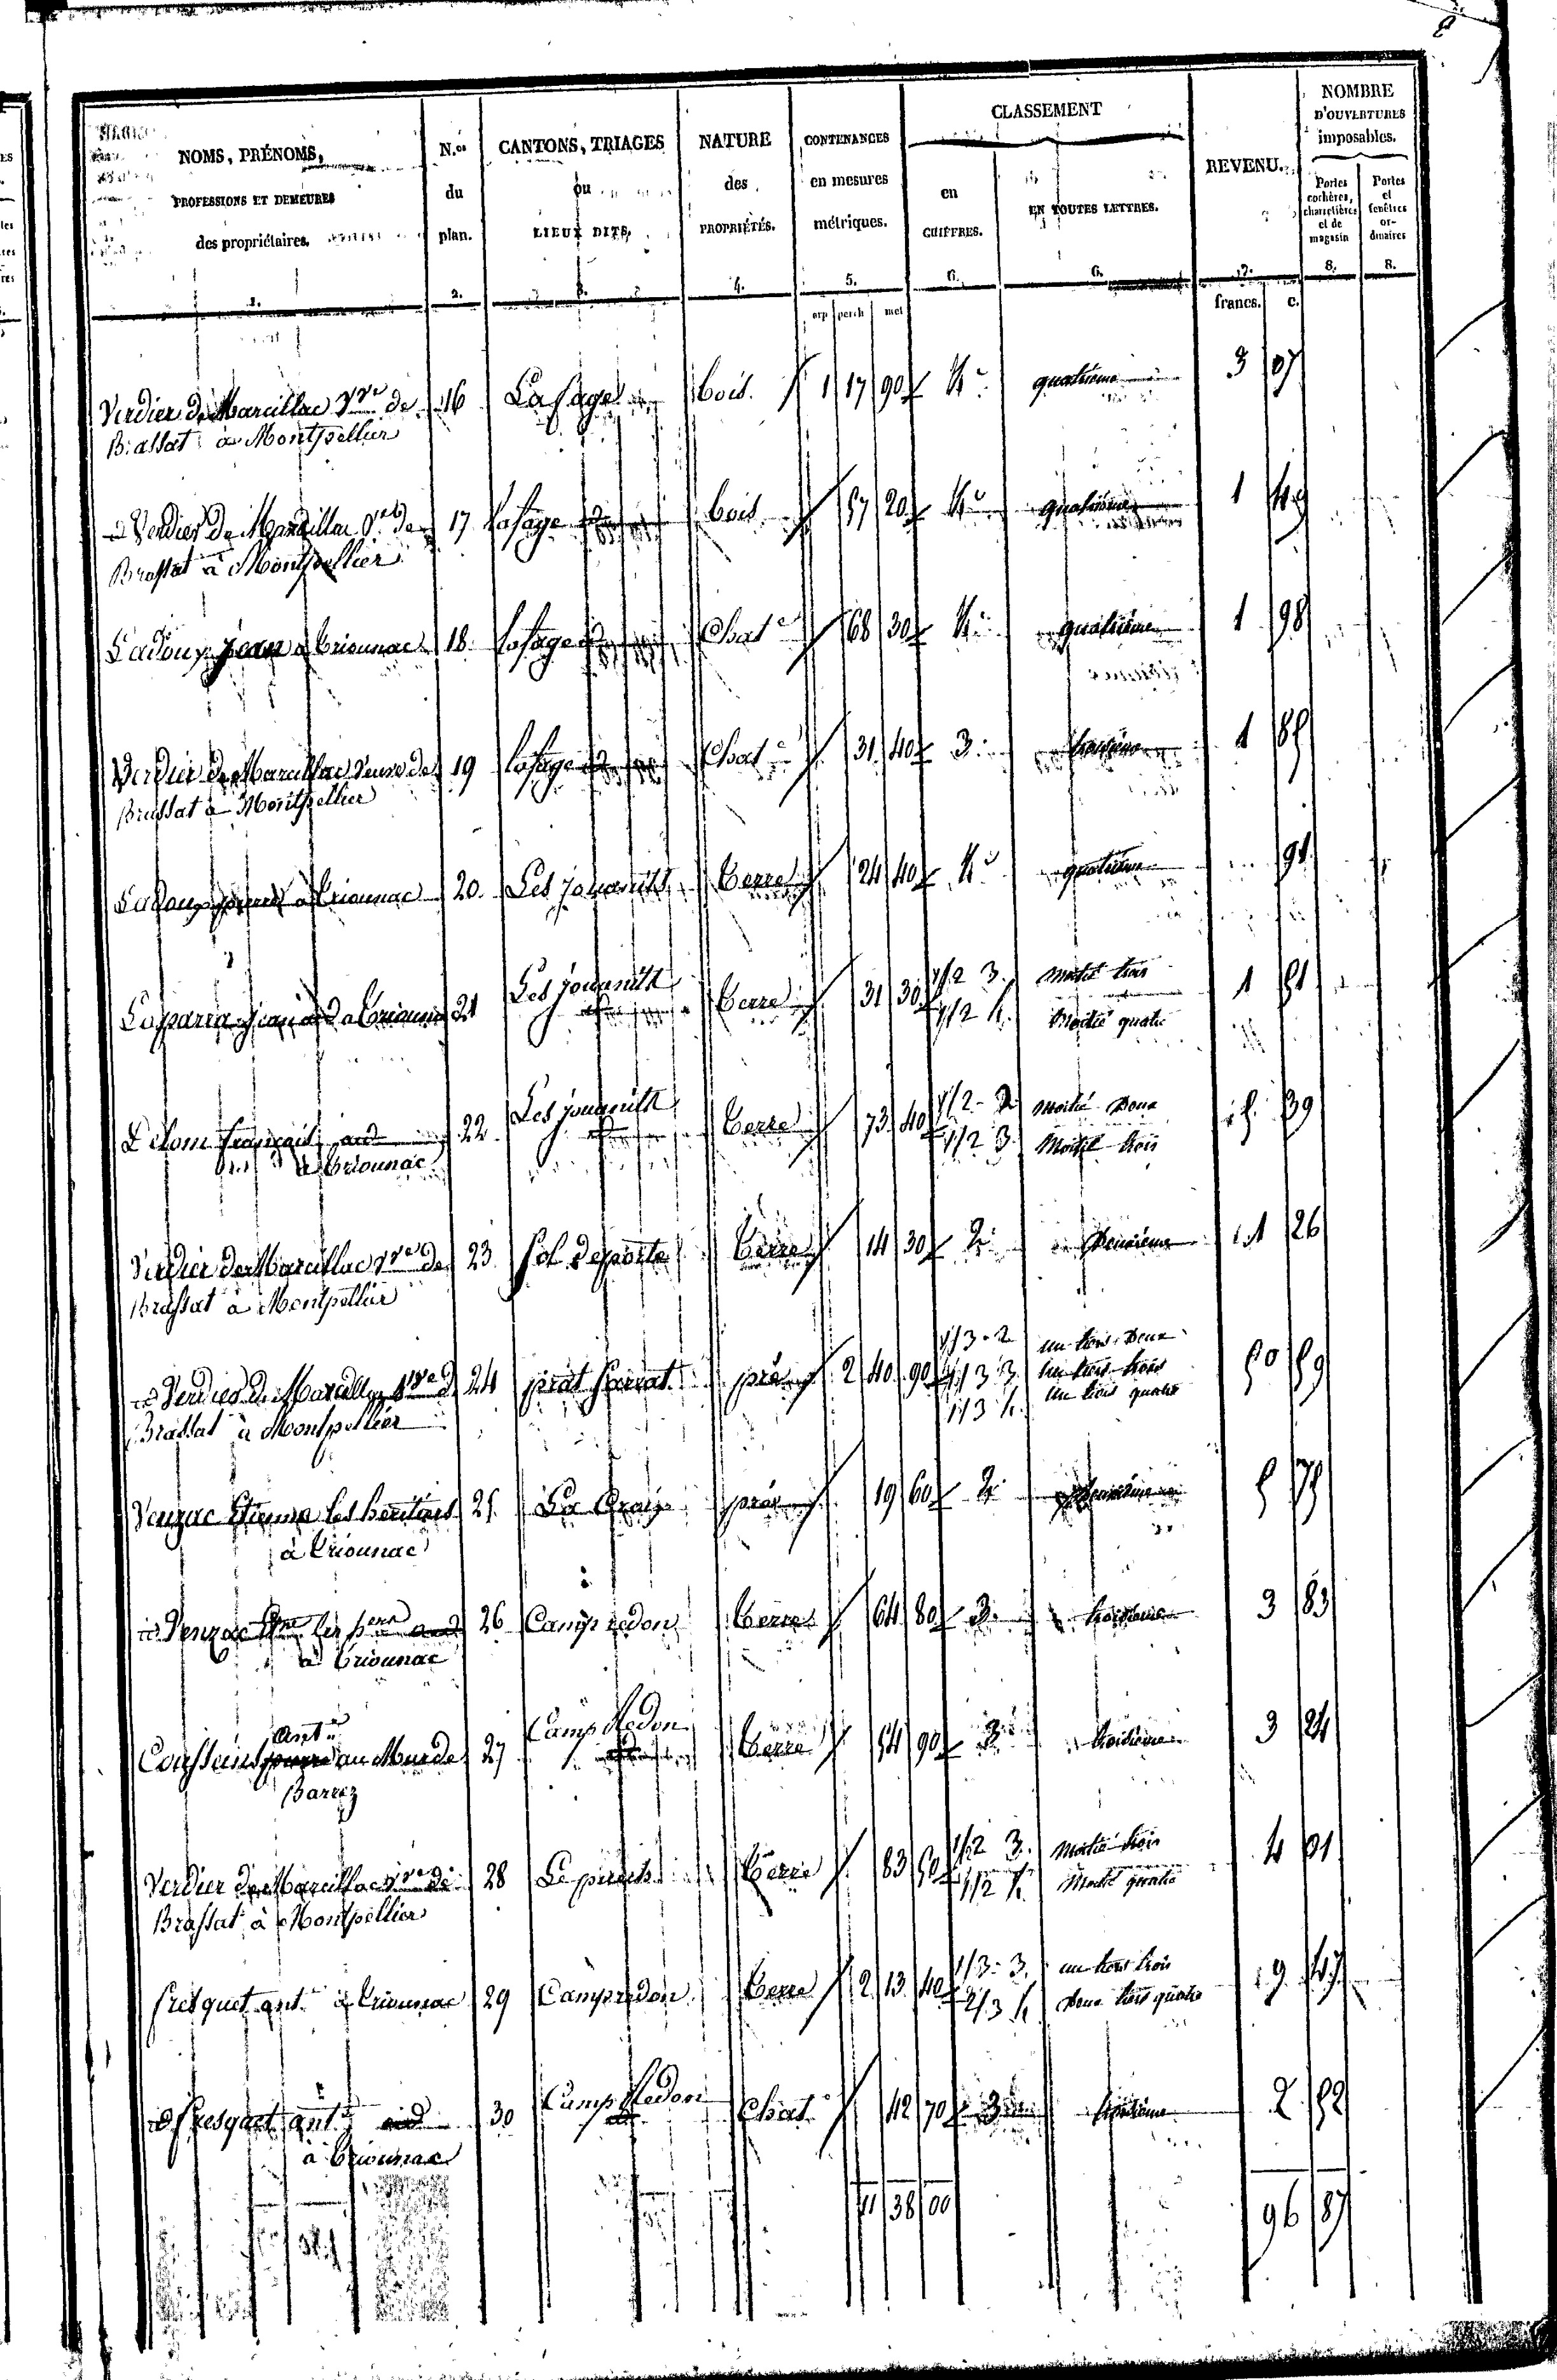 NOMS, PRÉNOMS,
PROFESSIONS ET DEMEURES
des propriétaires.
1.
N.os
du
plan.
2.
CANTONS, TRIAGES
ou
LIEUX DITS.
3.
NATURE
des
PROPRIÉTÉS.
4.
CONTENANCES
en mesures
métriques.
5.
arp perch met
CLASSEMENT
en
CHIFFRES.
6.
EN TOUTES LETTRES.
6.
REVENU.
7.
francs. c.
NOMBRE
D'OUVERTURES
imposables.
Portes cochères, charretières et de magasin
8.
Portes et fenêtres ordinaires
8.
Verdier de Marcillac Vve de 16 Lafage bois 1 17 90 4e quatrième 3 07
Brassat à Montpellier
Verdier de Marcillac Vve de 17 Lafage bois 57 20 4e quatrième 1 49
Brassat à Montpellier
Ladoux Jean à Criounac 18 lafage Chat 68 30 4e quatrième 1 98
Verdier de Marcillac Veuve de 19 lafage Chat 31 40 3e troisième 1 85
Brassat à Montpellier
Ladoux à Criounac 20 Les jouanits Terre 24 40 4e quatrième 91
Laparra jean à Criounac 21 Les jouanits Terre 31 30 1/2 3 moitié trois 1 51
1/2 4 Moitié quatre
françois 22 Les jouanits Terre 73 40 1/2 2 Moitié Deux 5 39
à Criounac 1/2 3 Moitié trois
Verdier de Marcillac Vve de 23 Sol Deporte Terre 14 30 2e Deuxième 1 26
Brassat à Montpellier
Verdier de Marcillac Vve d 24 prat pré 2 40 90 1/3 2 un tiers Deux 50 59
Brassat à Montpellier 1/3 3 un tiers trois
1/3 4 un tiers quatre
Venzac Etienne les héritiers 25 La pré 19 60 2e Deuxième 5 75
à Criounac
Venzac 26 Camp redon Terre 64 80 3e troisième 3 83
à Criounac
Ant
au Mur de 27 Camp Redon Terre 54 90 3e troisième 3 24
Barrez
Verdier de Marcillac Vve de 28 Le puech Terre 83 50 1/2 3 Moitié trois 4 01
Brassat à Montpellier 1/2 4 Moitié quatre
Fresquet ant à Criounac 29 Camp redon Terre 2 13 40 1/3 3 un tiers trois 9 47
2/3 4 Deux tiers quatre
Fresquet ant 30 Camp Redon Chat 42 70 3e troisième 2 52
à Criounac
11 38 00
96 87